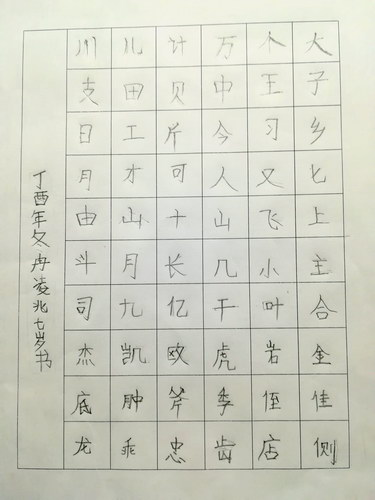 大子乡匕上主合全佳侧
个王习又飞小叶岩侄店
万中今人山几干虎季齿
计贝斤可十长亿欧斧忠
儿田工才山月九凯肿乖
川支日月由斗司杰底龙
丁酉年冬冉凌兆七岁书